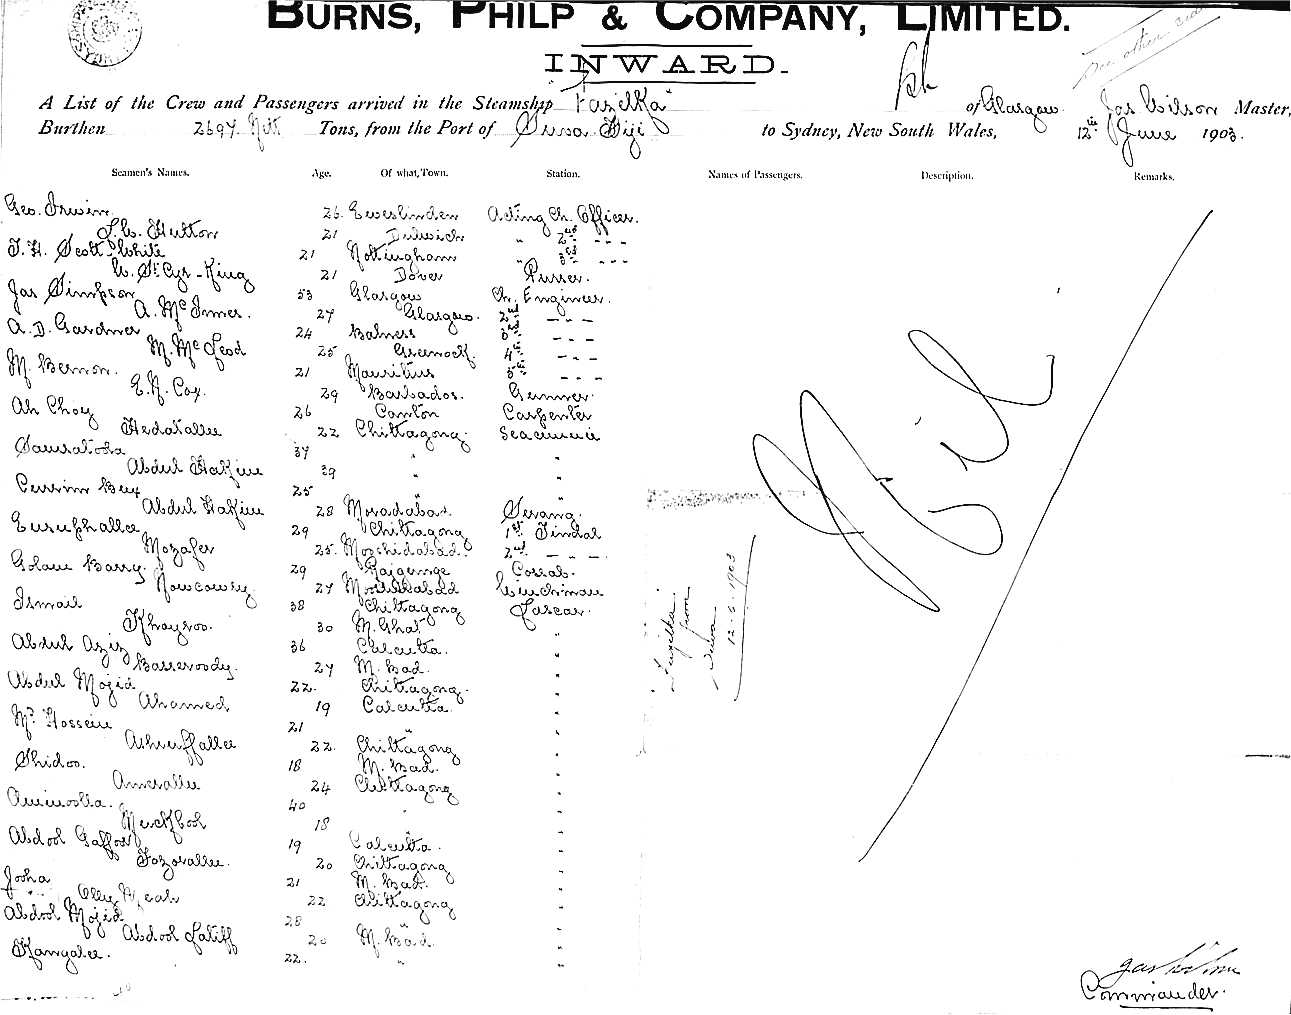 BURNS, PHILP & COMPANY, LIMITED.
INWARD.
See other side
A List of the Crew and Passengers arrived in the Steamship "Fazilka" of Glasgow Jas Wilson Master,
Burthen 2694 Nett Tons, from the Port of Suva Fiji to Sydney, New South Wales, 12th June 1903.
Seamen's Names. Age. Of what, Town. Station. Names of Passengers. Description. Remarks.
Geo. Irwin 26. Acting Ch. Officer.
Hutton 21 Dulwich " 2nd - - -
T. H. Scott White 21 Nottingham " 3rd - - -
W. St. Cyr-King 21 Dover Purser.
Jas Simpson 53 Glasgow Ch. Engineer.
A. McInnes. 27 Glasgow. 2nd - - -
A. D. Gardner 24 3rd - - -
M. McLeod 25 Greenock. 4th - - -
M. Bernon. 21 Mauritius 5th - - -
E. N. Cox. 29 Barbados. Gunner.
Ah Choy 26 Canton Carpenter
Hedatallee 22 Chittagong. Seacunnie
37 " "
Abdul Hakim 39 "
Cassim Bux 25 " "
Abdul Hakim 28 Moradabad. Serang.
Eusuphallee 29 Chittagong 1st Tindal
Mozafer 25. Morshidabad. 2nd - - -
Golam Barry. 29 Cossab.
Nowcowry 27 Winchman
Ismail 38 Chittagong Lascar.
Khayroo. 30 M. Ghat "
Abdul Aziz 36 Calcutta. "
Basseroody. 27 M. Bad. "
Abdul Mojid 22. Chittagong. "
Ahamed 19 Calcutta. "
Md. Hossein 21 " "
Ashruffallee 22. Chittagong "
Shidoo. 18 M. Bad. "
Amerallee 24 Chittagong "
Aminoolla. 40 " "
18 "
Abdool Gaffoor 19 Calcutta. "
Fozorallee. 20 Chittagong "
Josha 21 M. Bad. "
Olley Meah 22 Chittagong "
Abdool Mojid 28 " "
Abdool Latiff 20 M. Bad. "
Kangalee. 22. " "
Nil
"Fazilka"
from
Suva
12.6.1903
Jas Wilson
Commander.